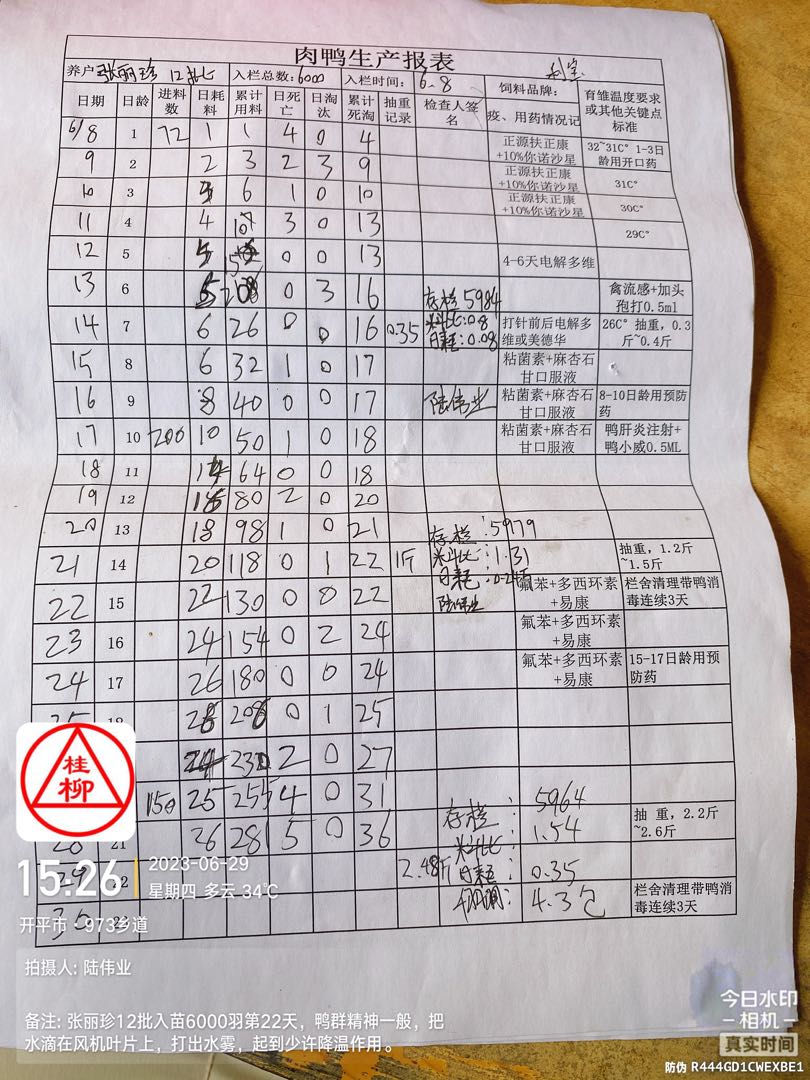 肉鸭生产报表
养户 张丽珍 12批 入栏总数:6000 入栏时间: 6.8 饲料品牌:
育雏温度要求或其他关键点标准
日期 日龄 进料数 日耗料 累计用料 日死亡 日淘汰 累计死淘 抽重记录 检查人签名 疫、用药情况记
6/8 1 72 1 1 4 0 4 正源扶正康+10%你诺沙星 32~31C° 1-3日龄用开口药
9 2 2 3 2 3 9 正源扶正康+10%你诺沙星 31C°
10 3 6 1 0 10 正源扶正康+10%你诺沙星 30C°
11 4 4 10 3 0 13 29C°
12 5 5 15 0 0 13 4-6天电解多维
13 6 20 0 3 16 存栏5984 禽流感+加头孢打0.5ml
14 7 6 26 0 0 16 0.35 料比:0.8 日耗:0.08 打针前后电解多维或美德华 26C° 抽重，0.3斤~0.4斤
15 8 6 32 1 0 17 粘菌素+麻杏石甘口服液
16 9 8 40 0 0 17 陆伟业 粘菌素+麻杏石甘口服液 8-10日龄用预防药
17 10 200 10 50 1 0 18 粘菌素+麻杏石甘口服液 鸭肝炎注射+鸭小威0.5ML
18 11 14 64 0 0 18
19 12 16 80 2 0 20
20 13 18 98 1 0 21 存栏:5979
21 14 20 118 0 1 22 1斤 料比:1.31 抽重，1.2斤~1.5斤
日耗:
22 15 22 130 0 0 22 陆伟业 氟苯+多西环素+易康 栏舍清理带鸭消毒连续3天
23 16 24 154 0 2 24 氟苯+多西环素+易康
24 17 26 180 0 0 24 氟苯+多西环素+易康 15-17日龄用预防药
28 208 0 1 25
24 230 2 0 27
150 25 255 4 0 31 存栏: 5964
21 26 281 5 0 36 料比: 1.54 抽 重，2.2斤~2.6斤
2.48斤 日耗: 0.35
4.3包 栏舍清理带鸭消毒连续3天
桂柳
15:26
2023-06-29
星期四 多云 34℃
开平市·973乡道
拍摄人: 陆伟业
备注: 张丽珍12批入苗6000羽第22天，鸭群精神一般，把
水滴在风机叶片上，打出水雾，起到少许降温作用。
今日水印
相机
真实时间
防伪 R444GD1CWEXBE1